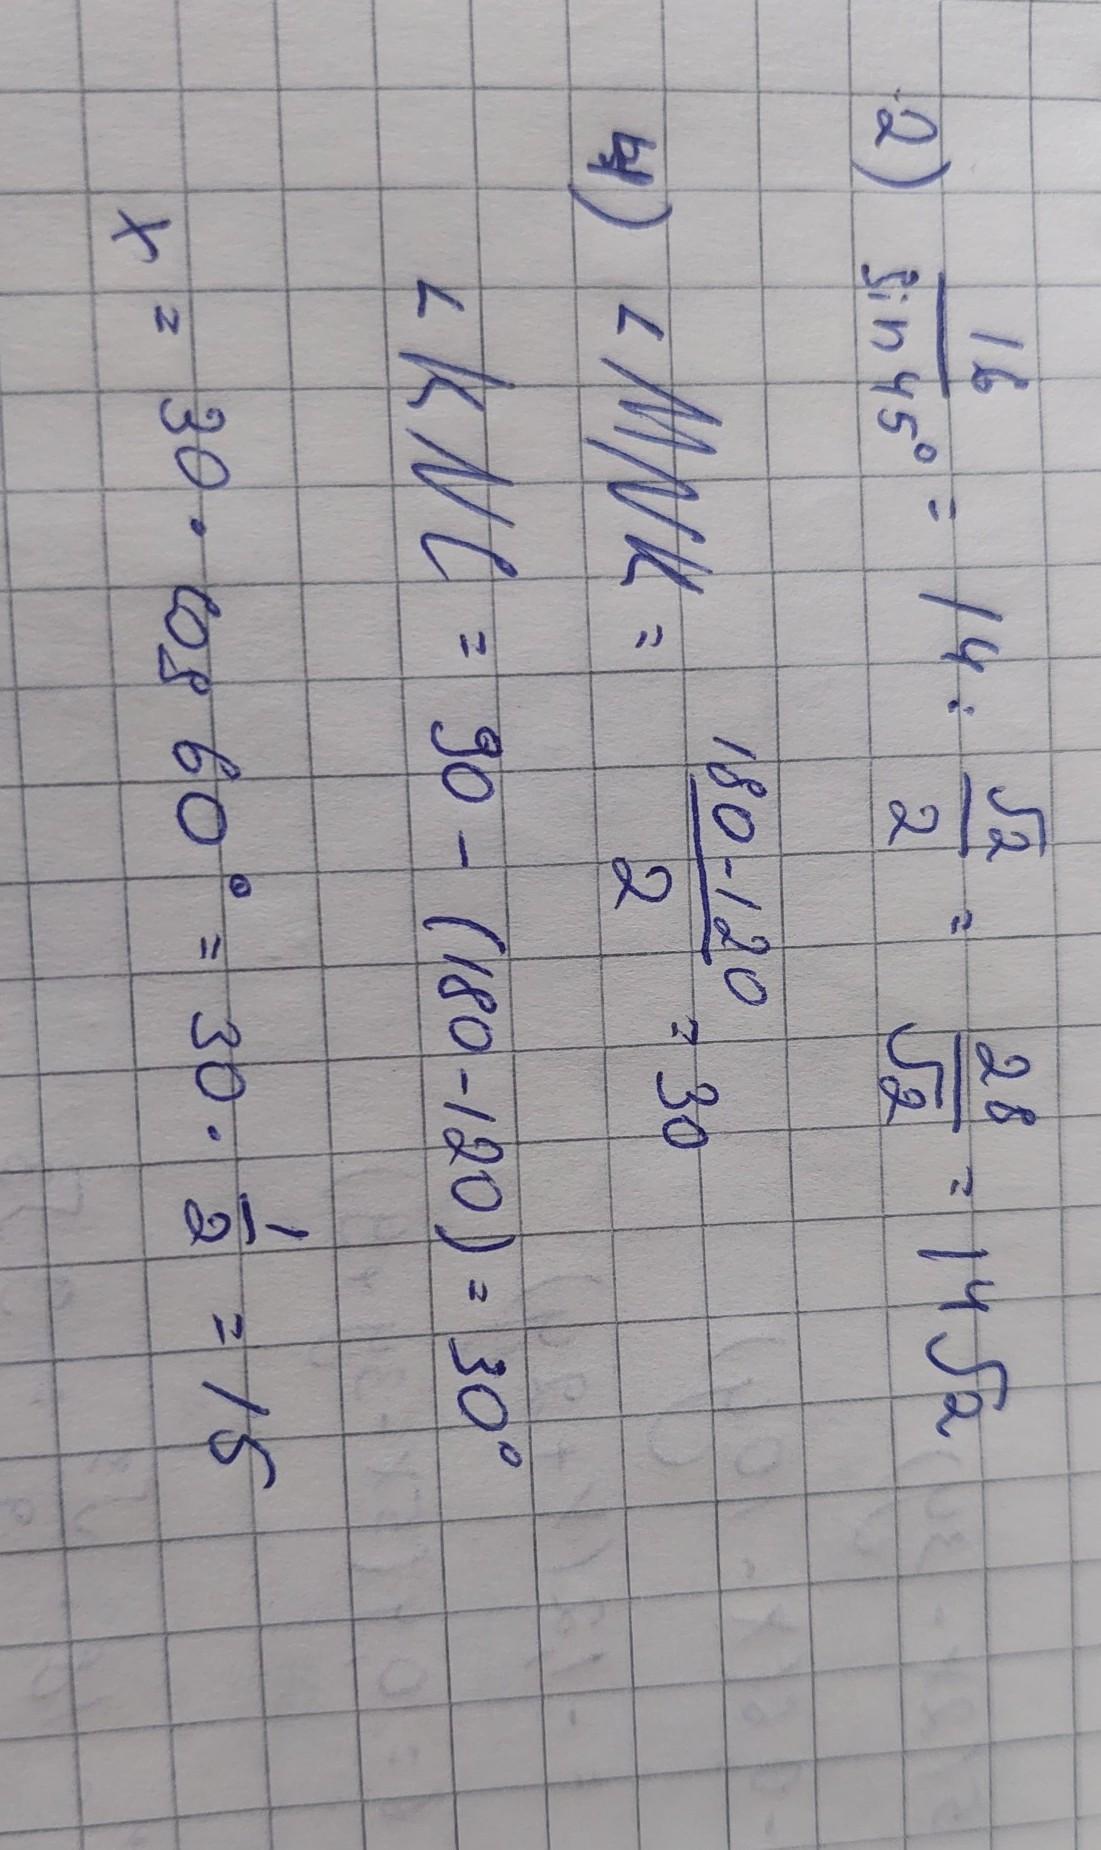 2) 16/sin45° = 14 : √2/2 = 28/√2 = 14√2
4) ∠MNK = 180-120/2 = 30
∠KNC = 90 - (180-120) = 30°
x = 30 · cos 60° = 30 · 1/2 = 15